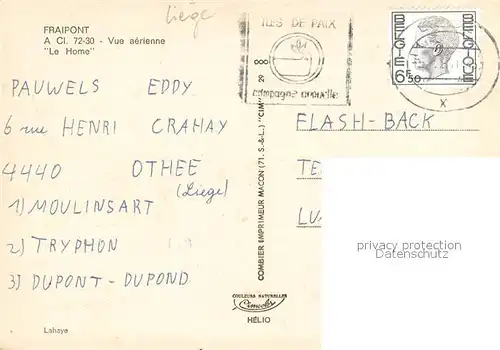 Liège
FRAIPONT
A Cl. 72-30 - Vue aérienne
"Le Home"
PAUWELS EDDY
6 rue HENRI CRAHAY
4440 OTHEE
(Liege)
1) MOULINSART
2) TRYPHON
3) DUPONT - DUPOND
Lahaye
ILES DE PAIX
campagne annuelle
COMBIER IMPRIMEUR MACON (71. S.-&-L.) "CIM"
COULEURS NATURELLES
Cimcolor
HÉLIO
BELGIE BELGIQUE
6F50
X
FLASH-BACK
TE
LU
privacy protection
Datenschutz